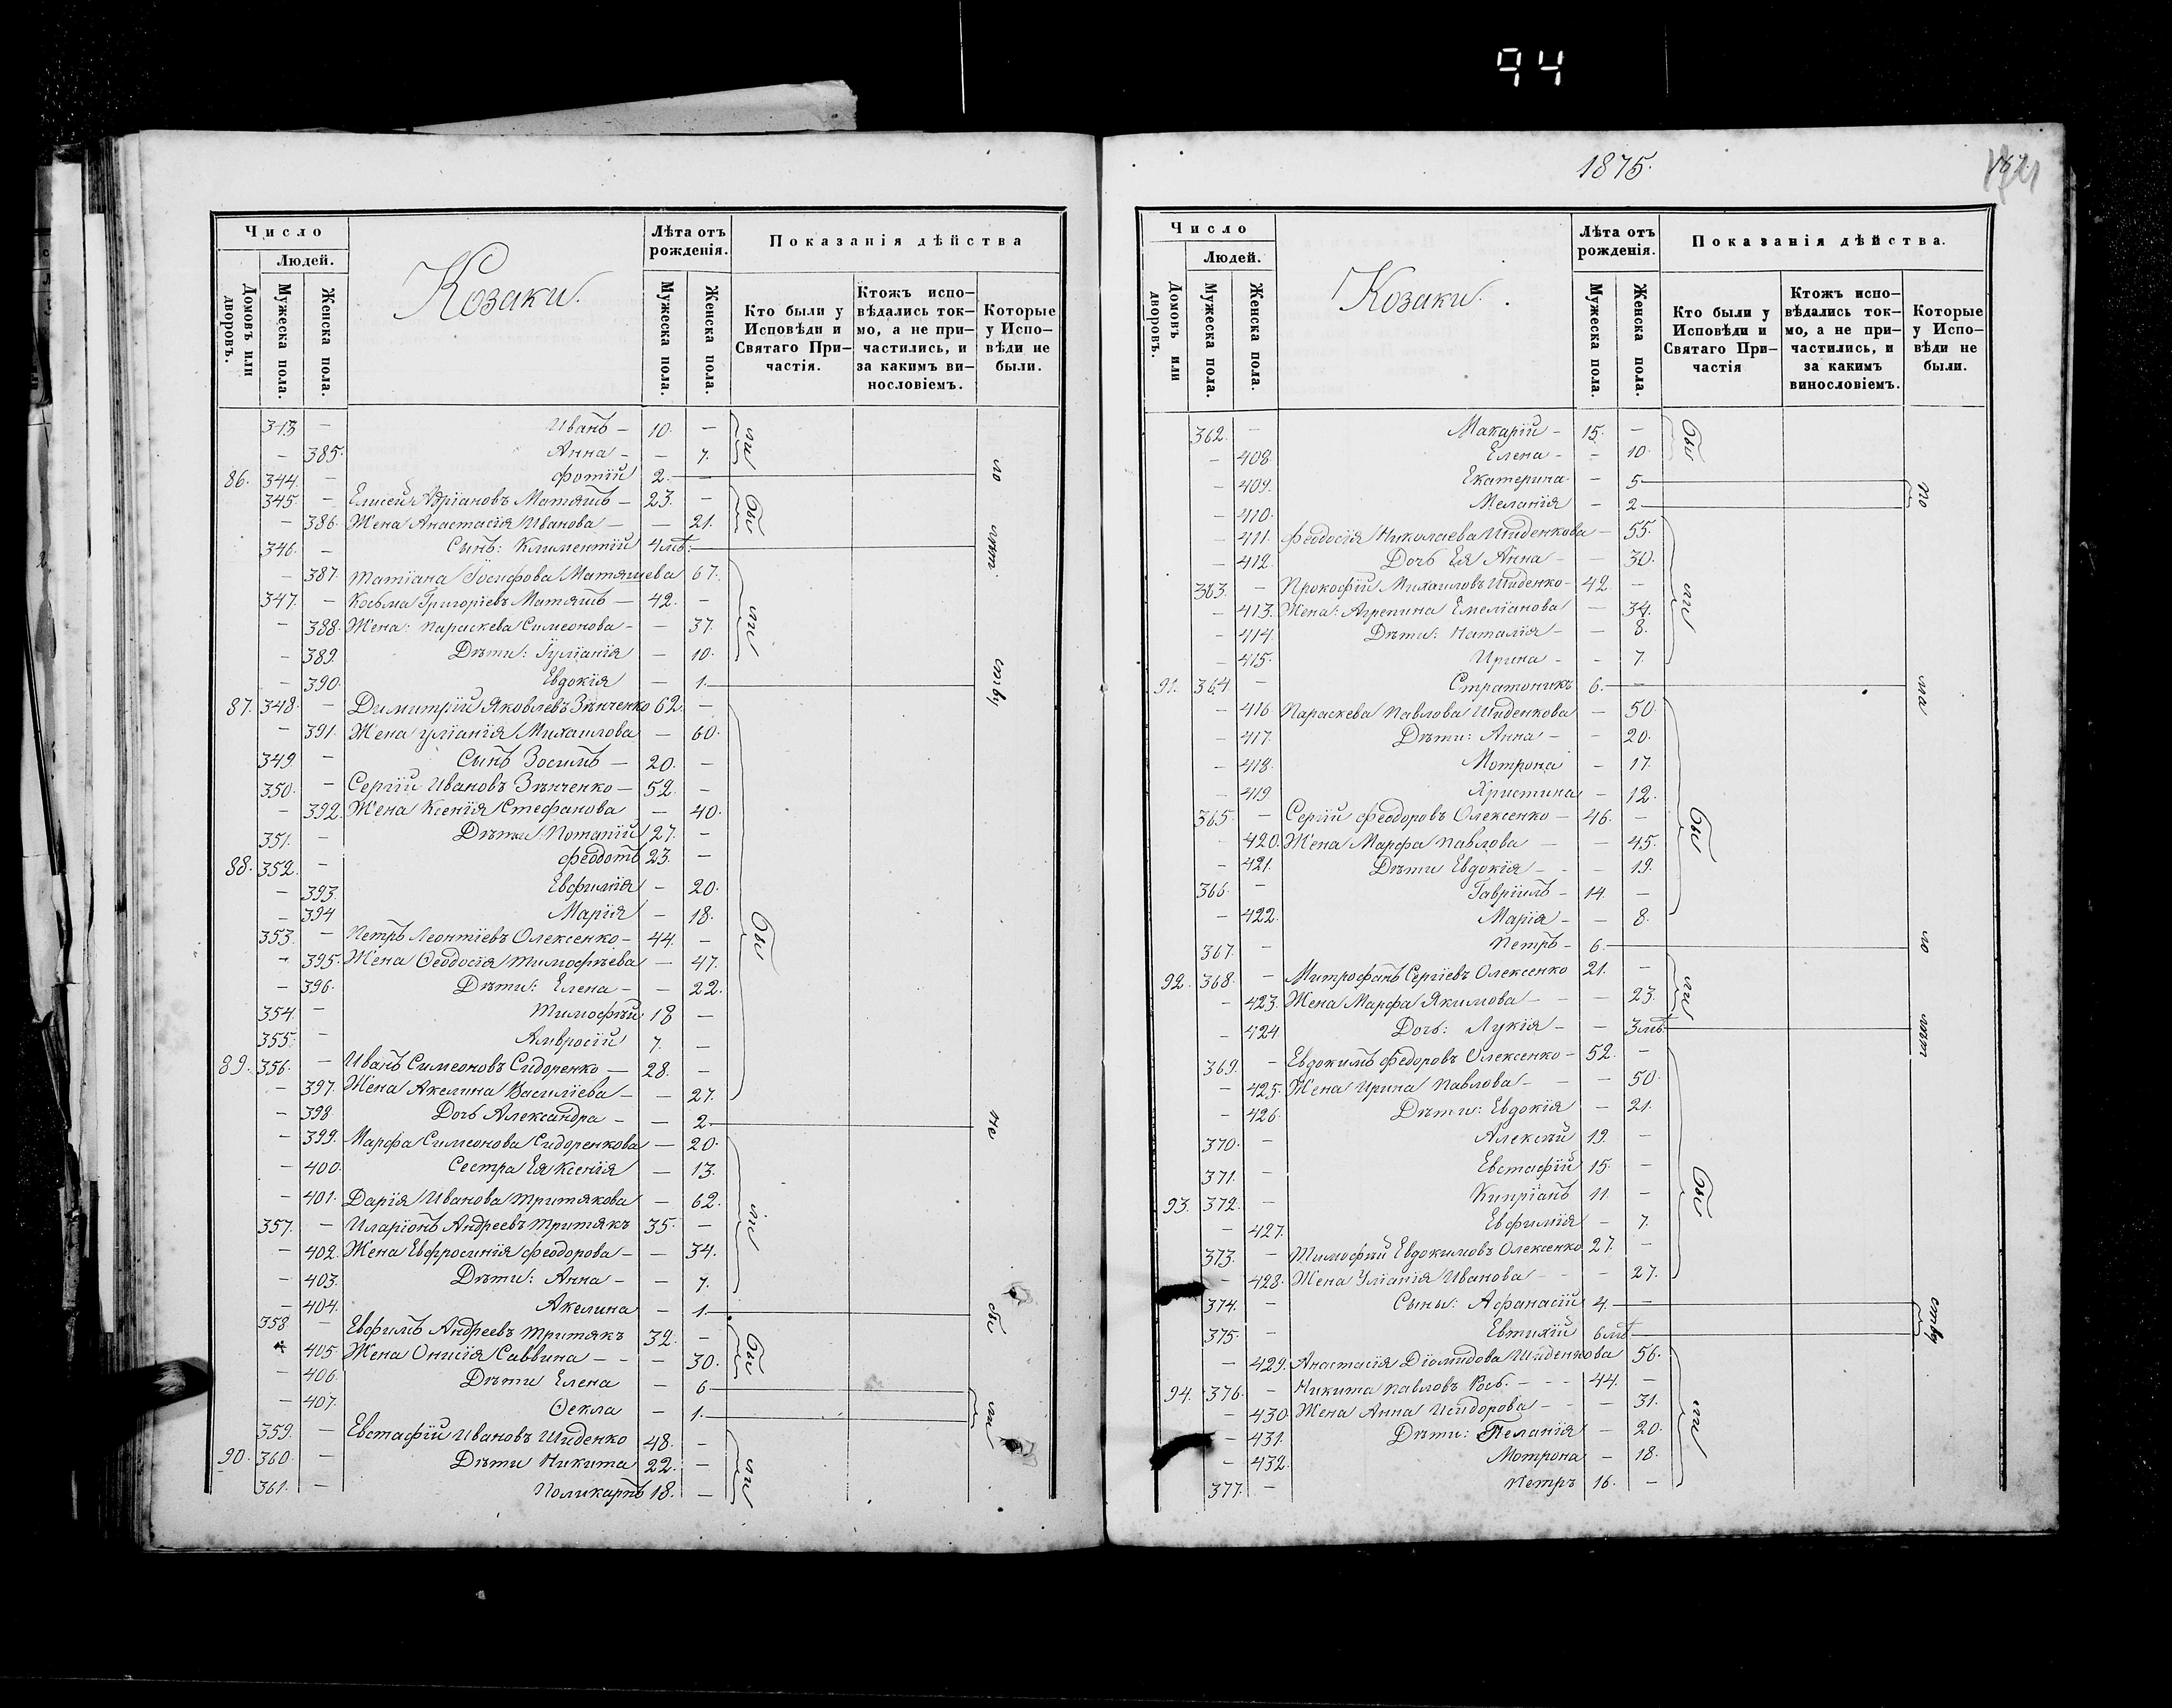 94
Число
Людей.
Домовъ или дворовъ.
Мужеска пола.
Женска пола.
Козаки.
Лѣта отъ рожденія.
Мужеска пола.
Женска пола.
Показанія дѣйства
Кто были у Исповѣди и Святаго Причастія.
Ктожъ исповѣдались токмо, а не причастились, и за какимъ винословіемъ.
Которые у Исповѣди не были.
343 — Иванъ — 10. —
— 385. Анна — — 7.
86. 344. — Фотій 2. —
345. — Елисей Адріановъ Матяшъ — 23. —
— 386. Жена Анастасія Иванова — — 21.
346. — Сынъ: Климентій 4 мѣ.
— 387. Татіана Іосифова Матяшева 67.
347. — Косьма Григоріевъ Матяшъ — 42. —
— 388. Жена: Параскева Симеонова — — 37.
— 389. Дѣти: Іуліанія — 10.
— 390. Евдокія — 1.
87. 348. — Димитрій Яковлевъ Зѣнченко 62. —
— 391. Жена Уліанія Михаилова — 60.
349. — Сынъ Зосимъ — 20. —
350. — Сергій Ивановъ Зѣнченко — 52. —
— 392. Жена Ксенія Стефанова — 40.
351. — Дѣти: Потапій 27. —
88. 352. — Феодотъ 23. —
— 393. Евфимія — 20.
— 394 Марія — 18.
353. — Петръ Леонтіевъ Олексенко — 44. —
— 395. Жена Ѳеодосія Тимофѣева — 47.
— 396. Дѣти: Елена — — 22.
354. — Тимофѣй 18 —
355. — Амвросій 7. —
89. 356. — Иванъ Симеоновъ Сидоренко — 28. —
— 397. Жена Акелина Василіева — — 27.
— 398. Дочь Александра — — 2.
— 399. Марфа Симеонова Сидоренкова — 20.
— 400. Сестра Ея Ксенія — 13.
— 401. Дарія Иванова Тритякова — 62.
357. — Иларіонъ Андреевъ Тритякъ 35. —
— 402. Жена Евфросинія Феодорова — — 34.
— 403. Дѣти: Анна — — 7.
— 404. Акелина — 1.
358 — Евфимъ Андреевъ Тритякъ 32. —
405. Жена Онисія Саввина — — — 30.
— 406. Дѣти Елена — 6
— 407. Ѳекла — 1.
359. — Евстафій Ивановъ Шиденко 48. —
90. 360. — Дѣти Никита 22. —
361. — Поликарпъ 18. —
1875.
Число
Людей.
Домовъ или дворовъ.
Мужеска пола.
Женска пола.
Козаки.
Лѣта отъ рожденія.
Мужеска пола.
Женска пола.
Показанія дѣйства.
Кто были у Исповѣди и Святаго Причастія
Ктожъ исповѣдались токмо, а не причастились, и за какимъ винословіемъ.
Которые у Исповѣди не были.
362. — Макарій — 15. —
— 408. Елена — — 10.
— 409. Екатерина — 5
— 410. Меланія — 2
— 411. Феодосія Николаева Шиденкова — 55.
— 412. Дочь Ея Анна — — 30.
363. — Прокофій Михаиловъ Шиденко — 42. —
— 413. Жена: Агрепина Емеліанова — 34.
— 414. Дѣти: Наталія — — 8.
— 415. Ирина — — 7.
91. 364 — Стратоникъ 6. —
— 416. Параскева Павлова Шиденкова — 50.
— 417. Дѣти: Анна — — 20.
— 418. Мотрона — 17.
— 419 Христина — 12.
365. — Сергій Феодоровъ Олексенко — 46. —
— 420. Жена Марфа Павлова — — 45.
— 421. Дѣти Евдокія — — 19.
366. — Гавріилъ — 14. —
— 422. Марія — — 8.
367. — Петръ — 6.
92. 368. — Митрофанъ Сергіевъ Олексенко 21. —
— 423. Жена Марфа Якимова — — — 23.
— 424 Дочь: Лукія — — 3 мѣ.
369. — Евдокимъ Федоровъ Олексенко — 52. —
— 425. Жена Ирина Павлова — — — 50.
— 426. Дѣти: Евдокія — 21.
370. — Алексѣй 19. —
371. — Евстафій 15. —
93. 372. — Кипріанъ 11. —
— 427. Евфимія — 7.
373. — Тимофѣй Евдокимовъ Олексенко 27. —
— 428. Жена Уліанія Иванова — — — 27.
374. — Сыны: Афанасій 4. —
375. — Евтихій 6 мѣ.
— 429. Анастасія Діомидова Шиденкова 56.
94. 376. — Никита Павловъ — — — 44. —
— 430. Жена Анна Исидорова — — — 31.
— 431. Дѣти: Пелагія — 20.
— 432. Мотрона — 18.
377. — Петръ 16. —